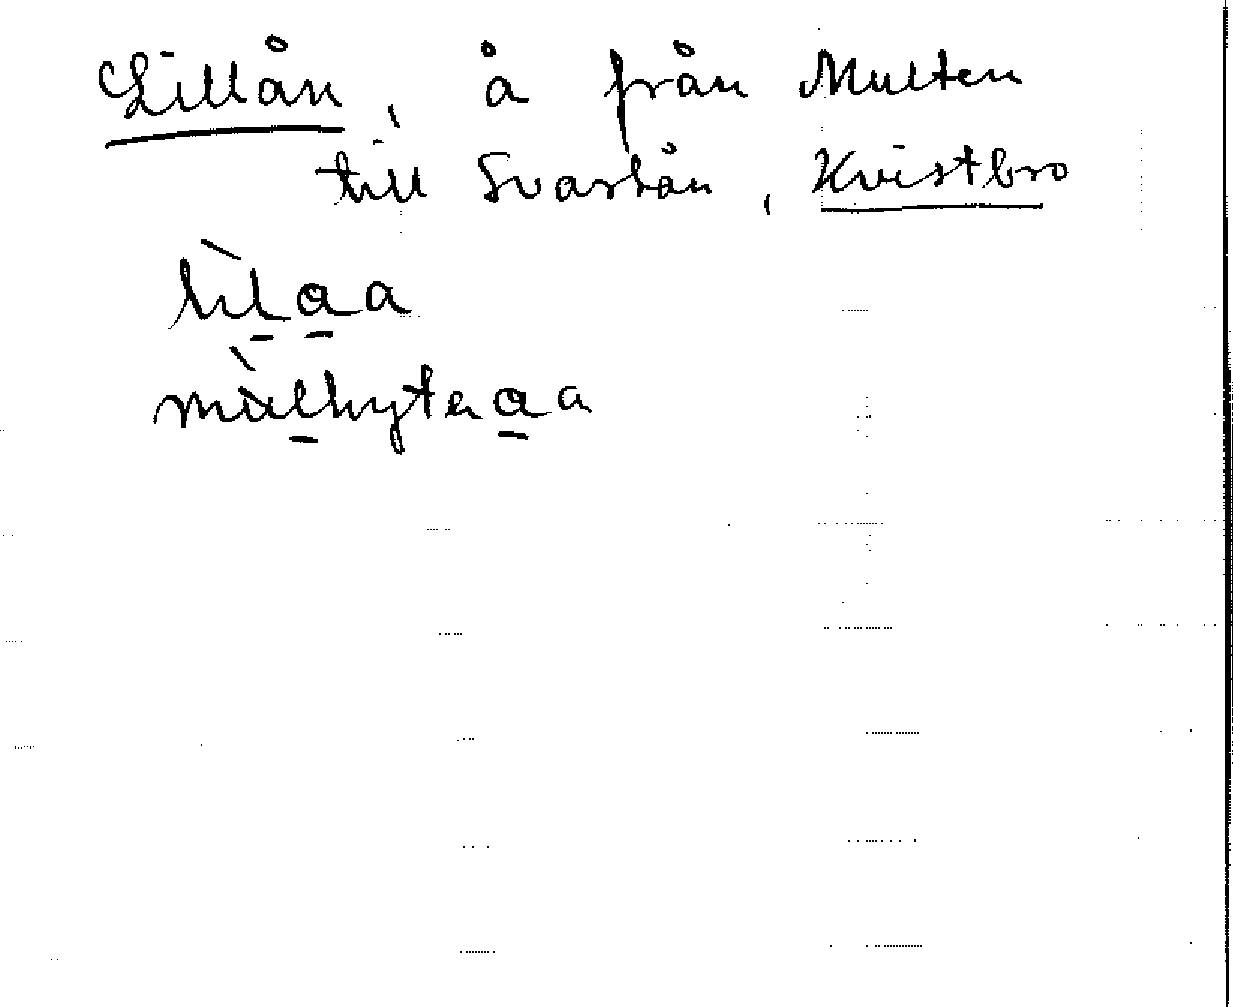 Lillån, å från Multen
till Svartån, Kvistbro
lìlaa
mùlhytenaa